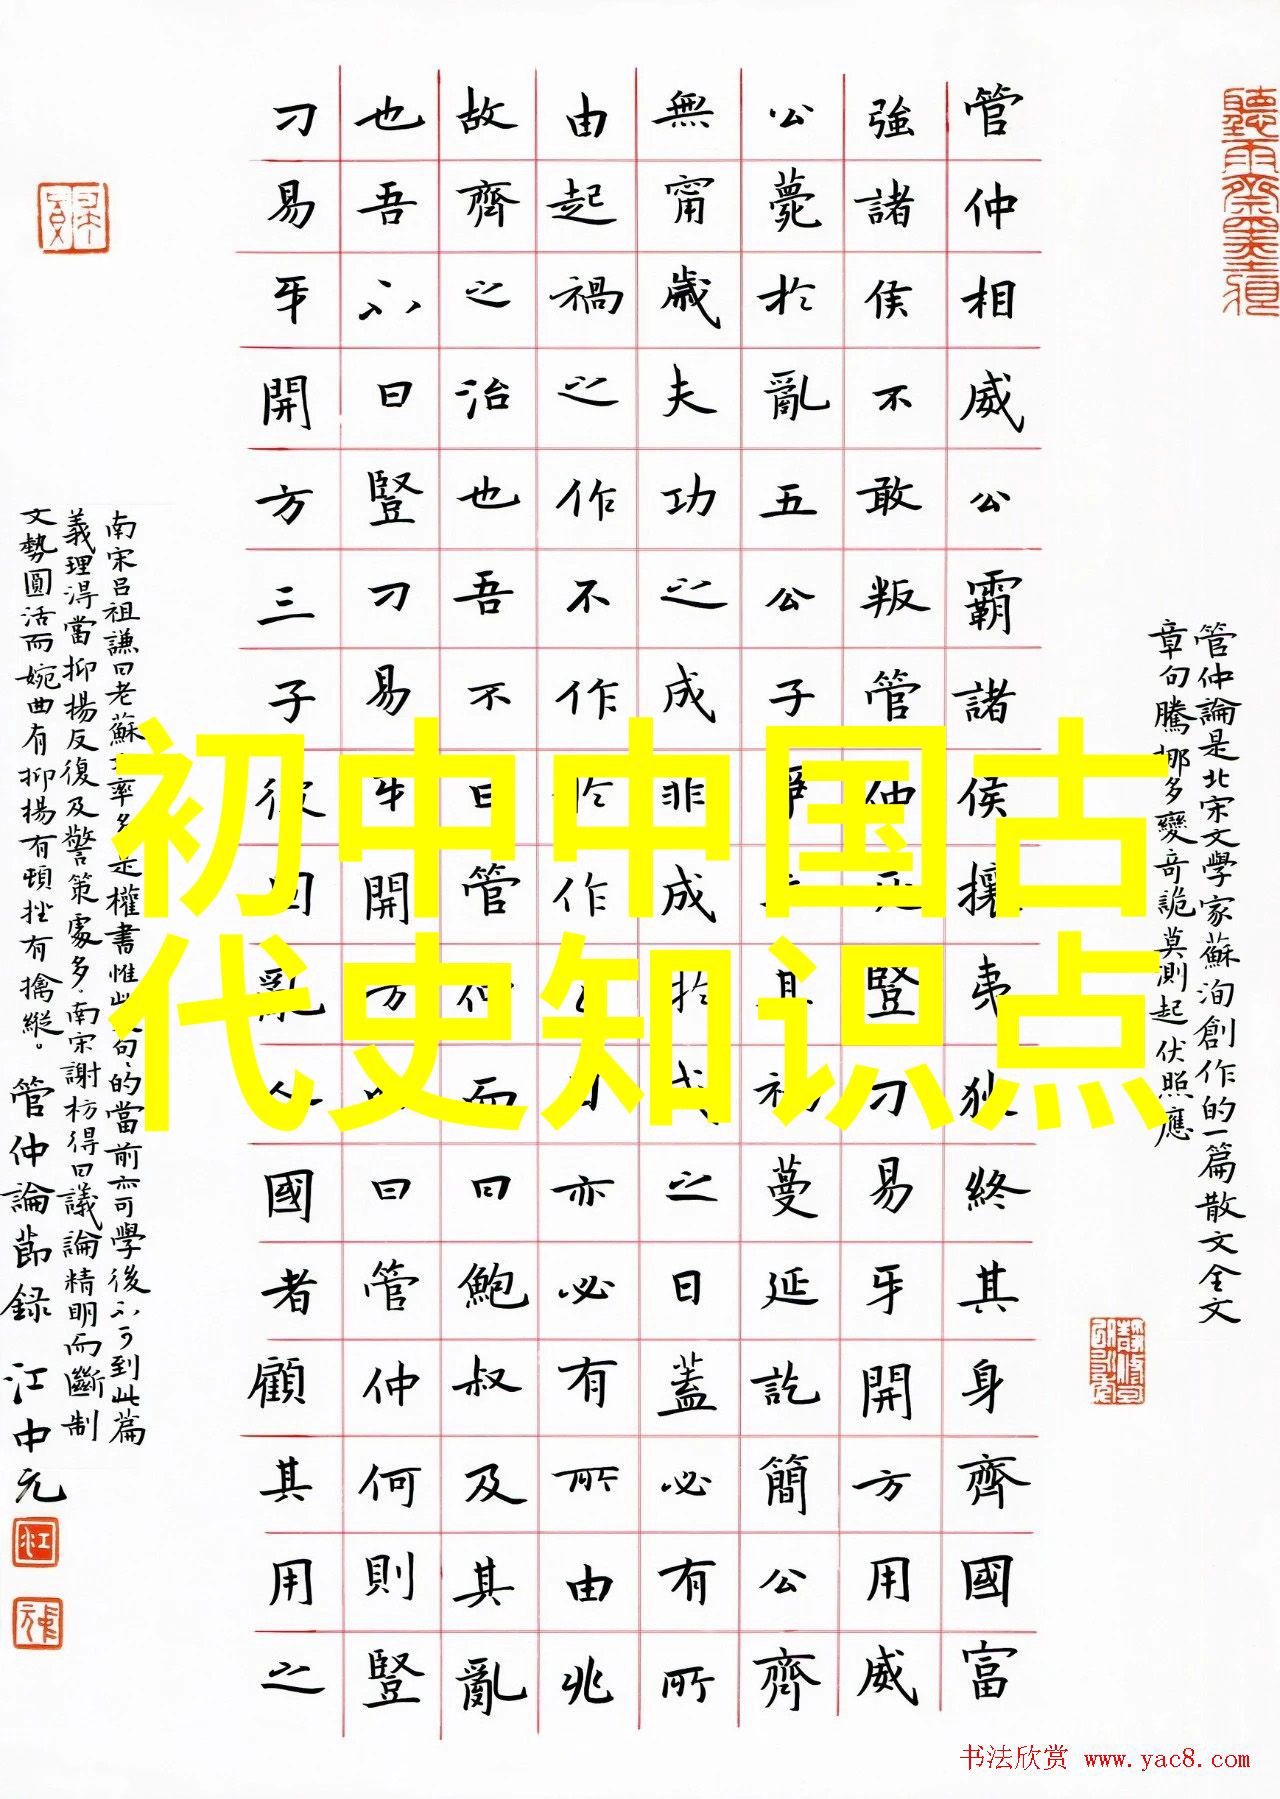 管仲論是北宋文學家蘇洵創作的一篇散文全文
章句騰挪多變奇詭莫測起伏照應
管仲相威公霸諸侯攘夷狄終其身齊國富
強諸侯不敢叛管仲死豎刁易牙開方用威
公薨於亂五公子爭其禍蔓延訖簡公齊
無甯歲夫功之成非成於成之日蓋必有所
由起禍之作不作於作之日亦必有所由兆
故齊之治也吾不曰管仲而曰鮑叔及其亂
也吾不曰豎刁易牙開方而曰管仲何則豎
刁易牙開方三子彼固亂人國者顧其用之
南宋呂祖謙曰老蘇大率多是權書惟此句的當前亦可學後不可到此篇
義理淂當抑揚反復及警策處多南宋謝枋得曰議論精明而斷制
文勢圓活而婉曲有抑揚有頓挫有擒縱。管仲論節録 江中元
初中中国古
代史知识点
书法欣赏 www.yac8.com